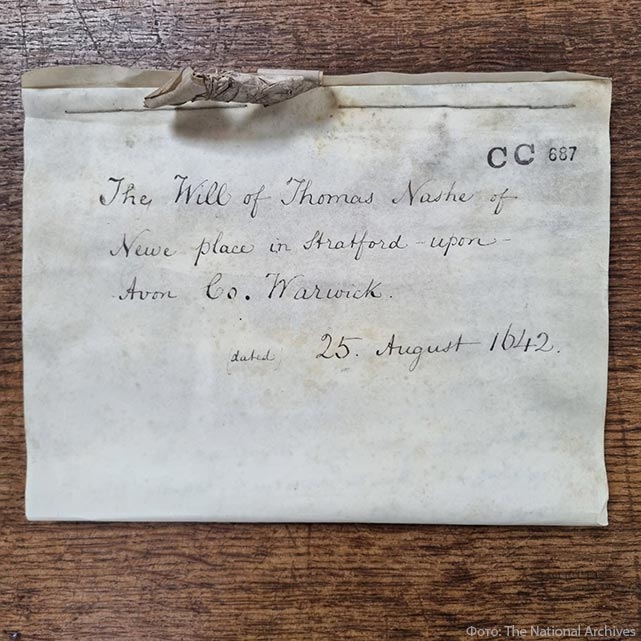 CC 687
The Will of Thomas Nashe of
Newe place in Stratford-upon-
Avon Co. Warwick.
(dated) 25. August 1642.
Фото: The National Archives